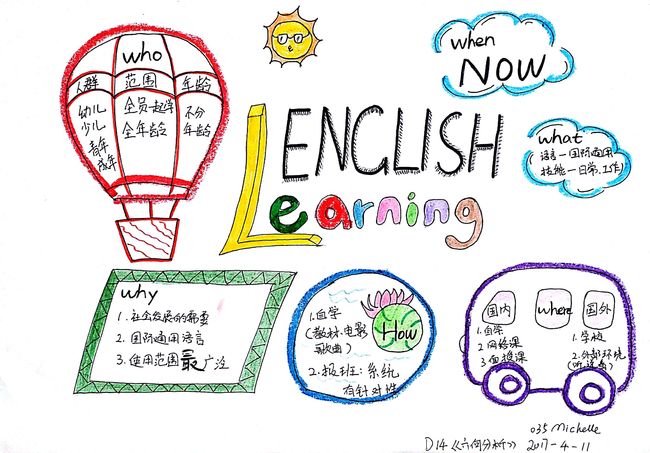 who
人群 范围 年龄
幼儿 全员一起学 不分
少儿 全年龄 年龄
青年
成年
when
NOW
what
语言—国际通用
技能—日常.工作
ENGLISH
Learning
why
1. 社会发展的需要
2. 国际通用语言
3. 使用范围最广泛
How
1.自学
(教材.电影
歌曲)
2.报班:系统
有针对性
国内 where 国外
1.自学
2.网络课
3.面授课
1.学校
2.外部环境
(听说看)
035 Michelle
D14《六何分析》 2017-4-11